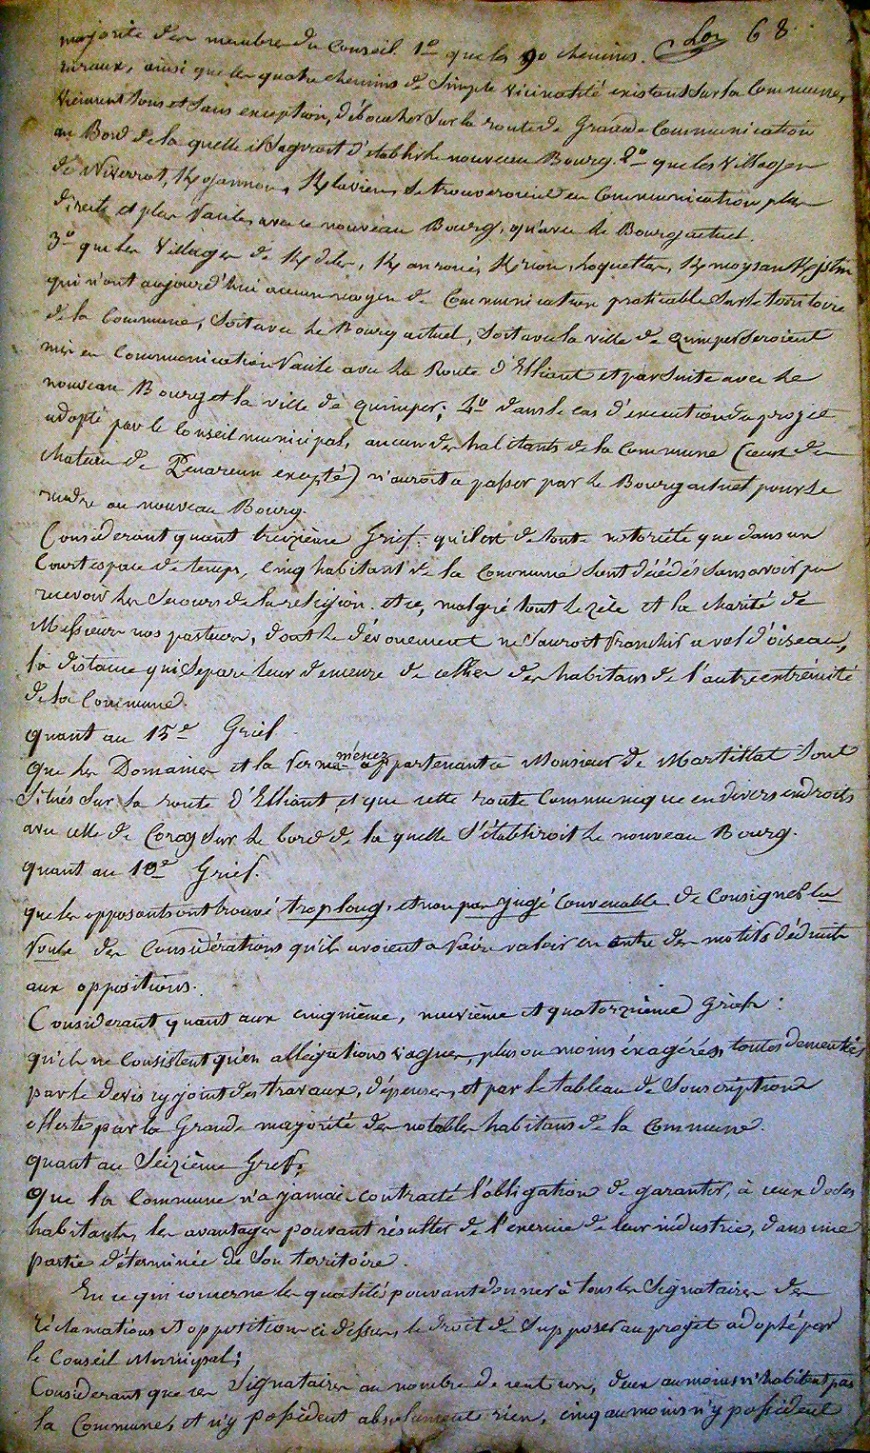 68
majorité des membres du Conseil. 1° que les 90 chemins
ruraux, ainsi que les quatre chemins de simple vicinalité existant sur la Commune,
viennent tous et sans exception, déboucher sur la route de Grande Communication
au Bord de laquelle il s'agiroit d'établir le nouveau Bourg. 2° que les villages
de Niverrot, Kjeannou, Klavien, se trouveroient en Communication plus
directe et plus facile, avec ce nouveau Bourg, qu'avec le Bourg actuel.
3° que les villages de Kdiles, Kanroué, Krion, hoquettes, Kmoysan Kjstin
qui n'ont aujourd'hui aucun moyen de Communication praticable sur le territoire
de la Commune, soit avec le Bourg actuel, soit avec la ville de Quimper seroient
mis en Communication facile avec la Route d'Elliant et par suite avec le
nouveau Bourg et la ville de Quimper; 4° dans le cas d'exécution du projet
adopté par le Conseil municipal, aucun des habitants de la Commune (ceux du
chateau de Penareun excepté) n'auroit a passer par le Bourg actuel pour se
rendre au nouveau Bourg.
Considerant quant treizième Grief: qu'il est de toute notoriété que dans un
Court espace de temps, cinq habitants de la Commune sont décédés sans avoir pu
recevoir les secours de la religion. et ce, malgré tout le zèle et la charité de
Messieurs nos pasteurs, dont le dévouement ne sauroit franchir a vol d'oiseau,
la distance qui separe leur demeure de celles des habitans de l'autre extrémité
de la Commune.
quant au 15e Grief.
Que les Domaines et la ferme m'enez appartenant a Monsieur de Martillat sont
situés sur la route d'Elliant, et que cette route Communique en divers endroits
avec celle de Coray sur le bord de la quelle s'établiroit le nouveau Bourg.
quant au 10e Grief.
que les opposants ont trouvé trop long, et non pas jugé Convenable de Consigner la
foule des Considérations qu'ils avoient a faire valoir en outre des motifs déduits
aux oppositions.
Considerant quant aux cinquième, neuvième et quatorzième Griefs:
qu'ils ne Consistent qu'en allégations vagues, plus ou moins éxagérées, toutes dementies
par le devis cy joint des travaux, dépenses, et par le tableau de Souscriptions
offerte par la Grande majorité des notables habitans de la Commune.
quant au Seizième Grief;
Que la Commune n'a jamais contracté l'obligation de garantir, à ceux de ses
habitants, les avantages pouvant résulter de l'exercice de leur industrie, dans une
partie déterminée de son territoire.
En ce qui concerne les qualités pouvant donner à tous les Signataires des
réclamations et opposition ci dessus, le Droit de s'opposer au projet adopté par
le Conseil Municipal;
Considerant que ces Signataires au nombre de cent un, deux au moins n'habitent pas
la Commune, et n'y possèdent absolument rien, cinq au moins n'y possèdent